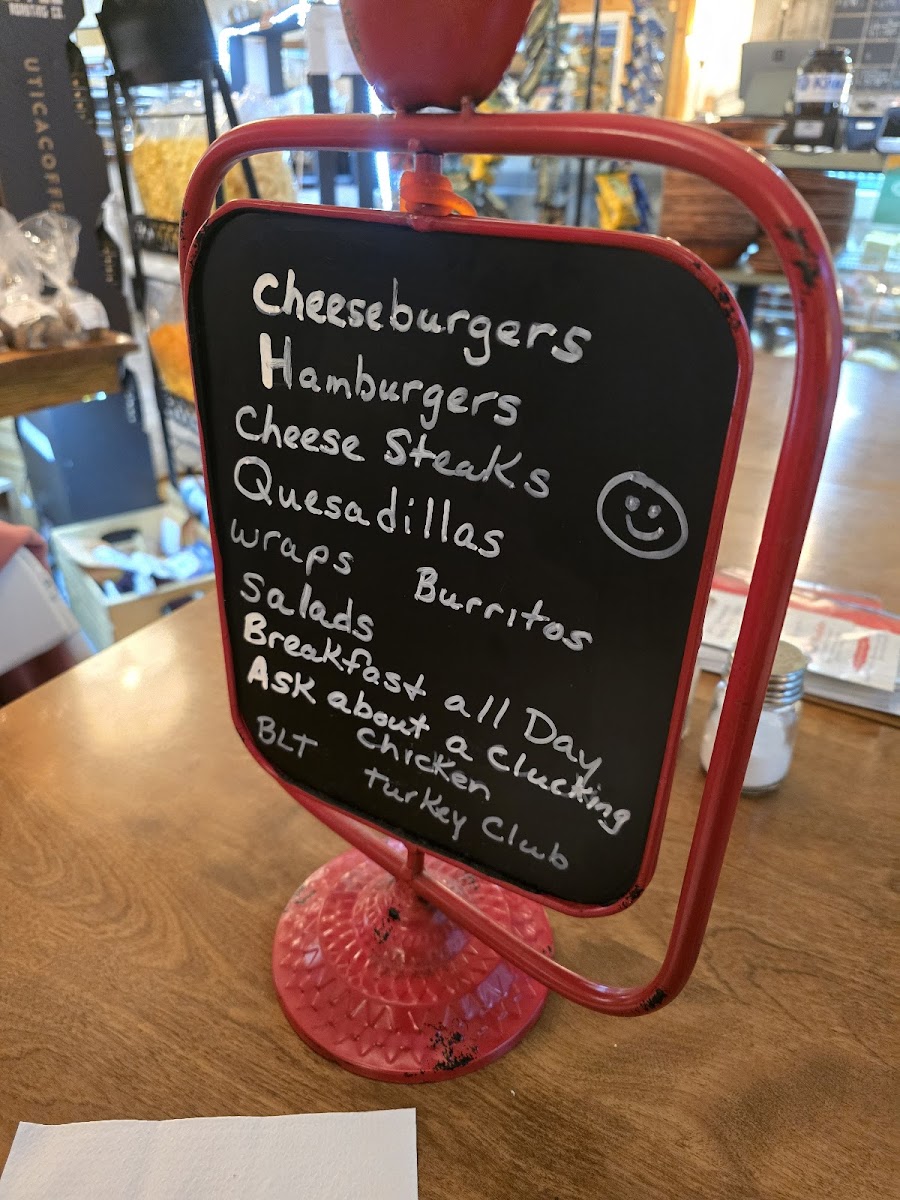 ROASTING CO.
UTICA COFFEE
Cheeseburgers
Hamburgers
Cheese Steaks
Quesadillas
wraps Burritos
Salads
Breakfast all Day
Ask about a Clucking
Chicken
BLT Turkey Club